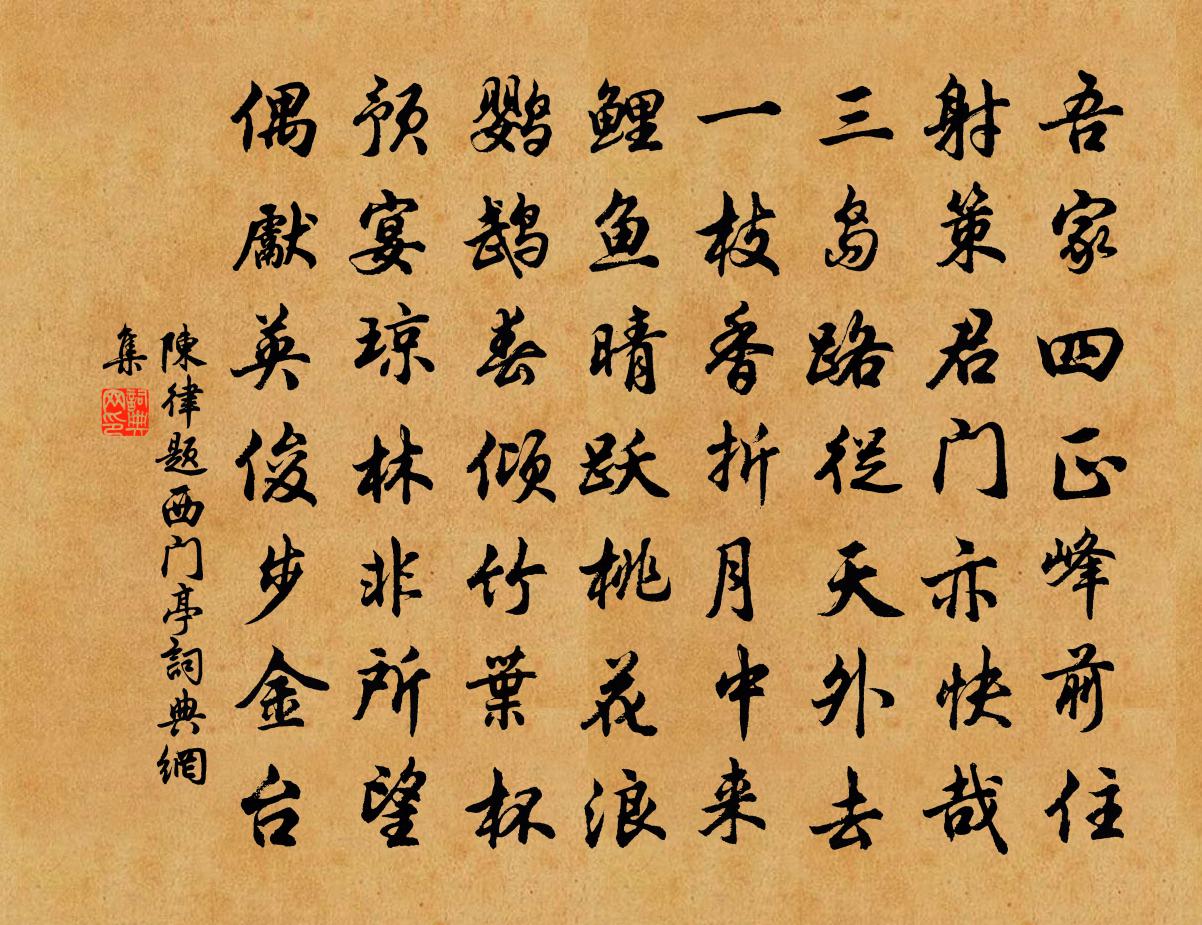 吾家四正峰前住
射策君门亦快哉
三岛路從天外去
一枝香折月中来
鲤鱼晴跃桃花浪
鹦鹉春倾竹葉杯
预宴琼林非所望
偶獻英俊步金台
陳律题西门亭詞典網
集
詞典网印